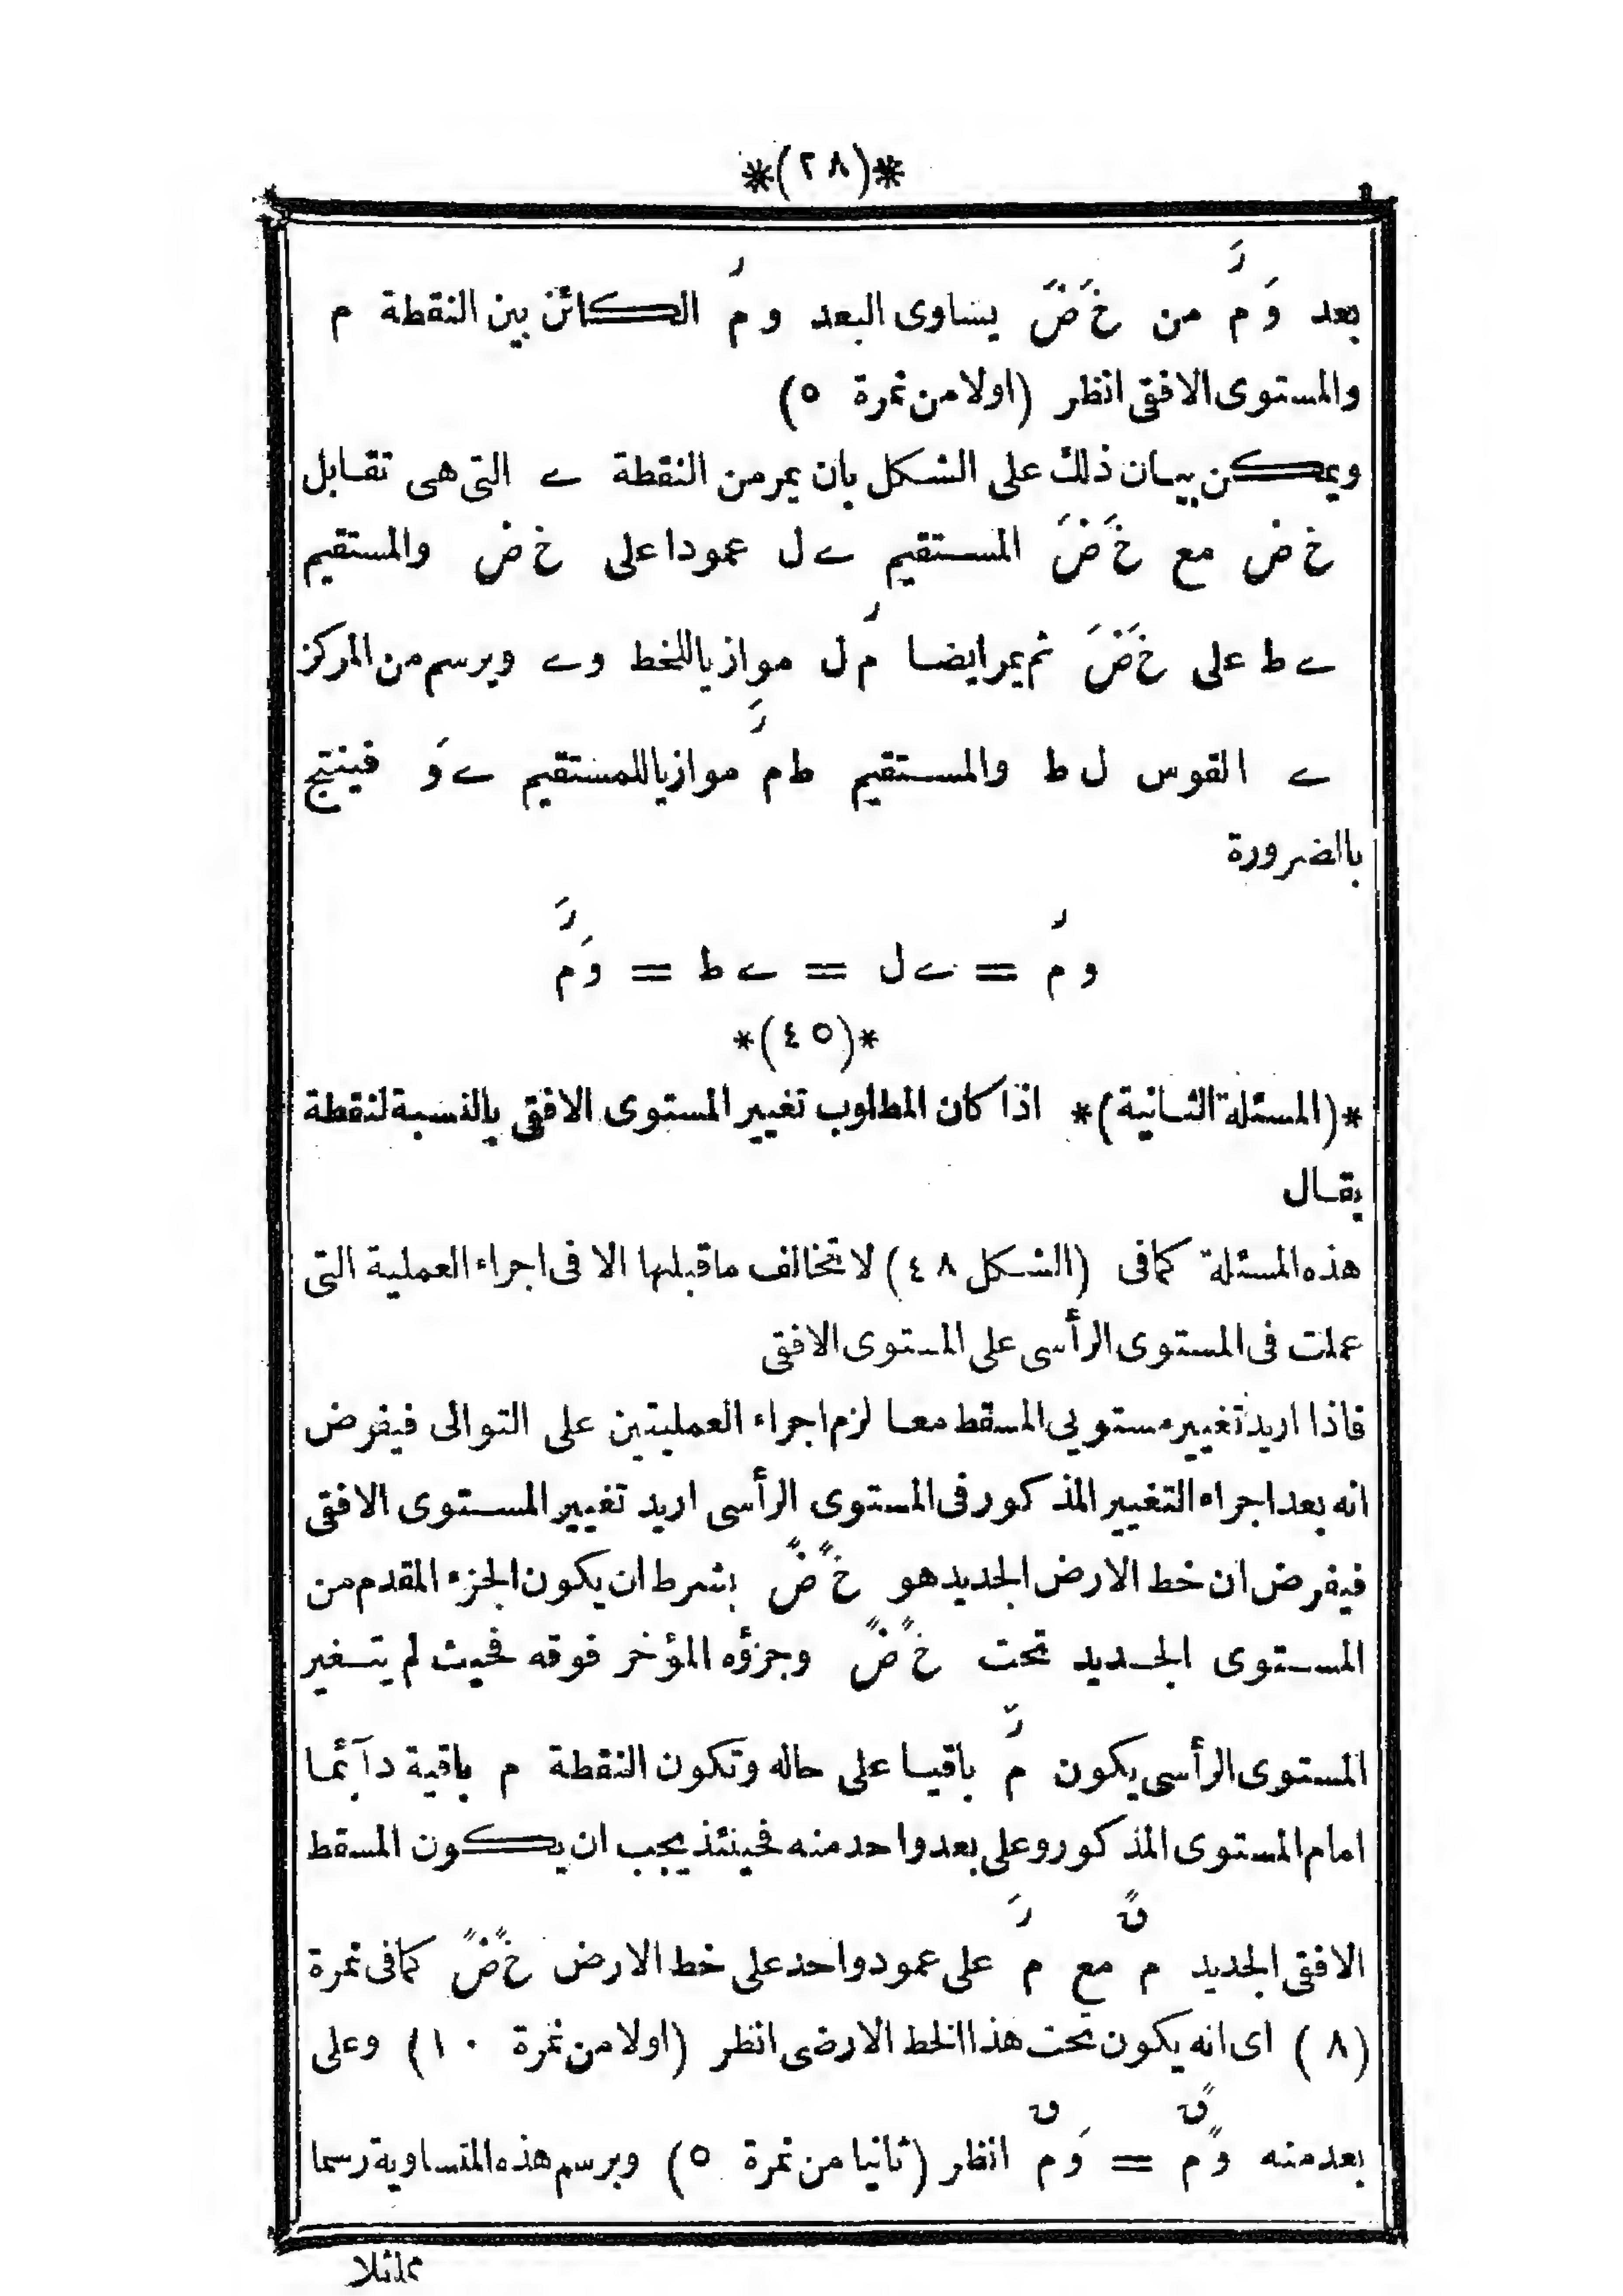 *(٢٨)*
بعد وَ مرَ من خَ ضَ يساوى البعد و مر الكائن بين النقطة م
والمستوى الافقى انظر (اولا من نمرة ٥)
ويمكن بيان ذلك على الشكل بان يمر من النقطة ے التى هى تقابل
خ ض مع خَ ضَ المستقيم ے ل عمودا على خ ض والمستقيم
ے ط على خَ ضَ ثم يمر ايضا مر ل موازيا للخط و ے ويرسم من المركز
ے القوس ل ط والمستقيم ط مرَ موازيا للمستقيم ے وَ فينتج
بالضرورة
و مر = ے ل = ے ط = وَ مرَ
*(٤٥)*
*(المسئلة الثانية)* اذا كان المطلوب تغيير المستوى الافقى بالنسبة لنقطة
يقال
هذه المسئلة كما فى (الشكل ٤٨) لا تخالف ما قبلها الا فى اجراء العملية التى
عملت فى المستوى الرأسى على المستوى الافقى
فاذا اريد تغيير مستويى المسقط معا لزم اجراء العمليتين على التوالى فيفرض
انه بعد اجراء التغيير المذكور فى المستوى الرأسى اريد تغيير المستوى الافقى
فيفرض ان خط الارض الجديد هو خً ضً بشرط ان يكون الجزء المقدم من
المستوى الجديد تحت خً ضً وجزؤه المؤخر فوقه فحيث لم يتغير
المستوى الرأسى يكون مرَ باقيا على حاله وتكون النقطة م باقية دآئما
امام المستوى المذكور وعلى بعد واحد منه فحينئذ يجب ان يكون المسقط
الافقى الجديد مںً مع مرَ على عمود واحد على خط الارض خً ضً كما فى نمرة
(٨) اى انه يكون تحت هذا الخط الارضى انظر (اولا من نمرة ١٠) وعلى
بعد منه وً مںً = وَ مں انظر (ثانيا من نمرة ٥) وبرسم هذه المتساوية رسما
مماثلا